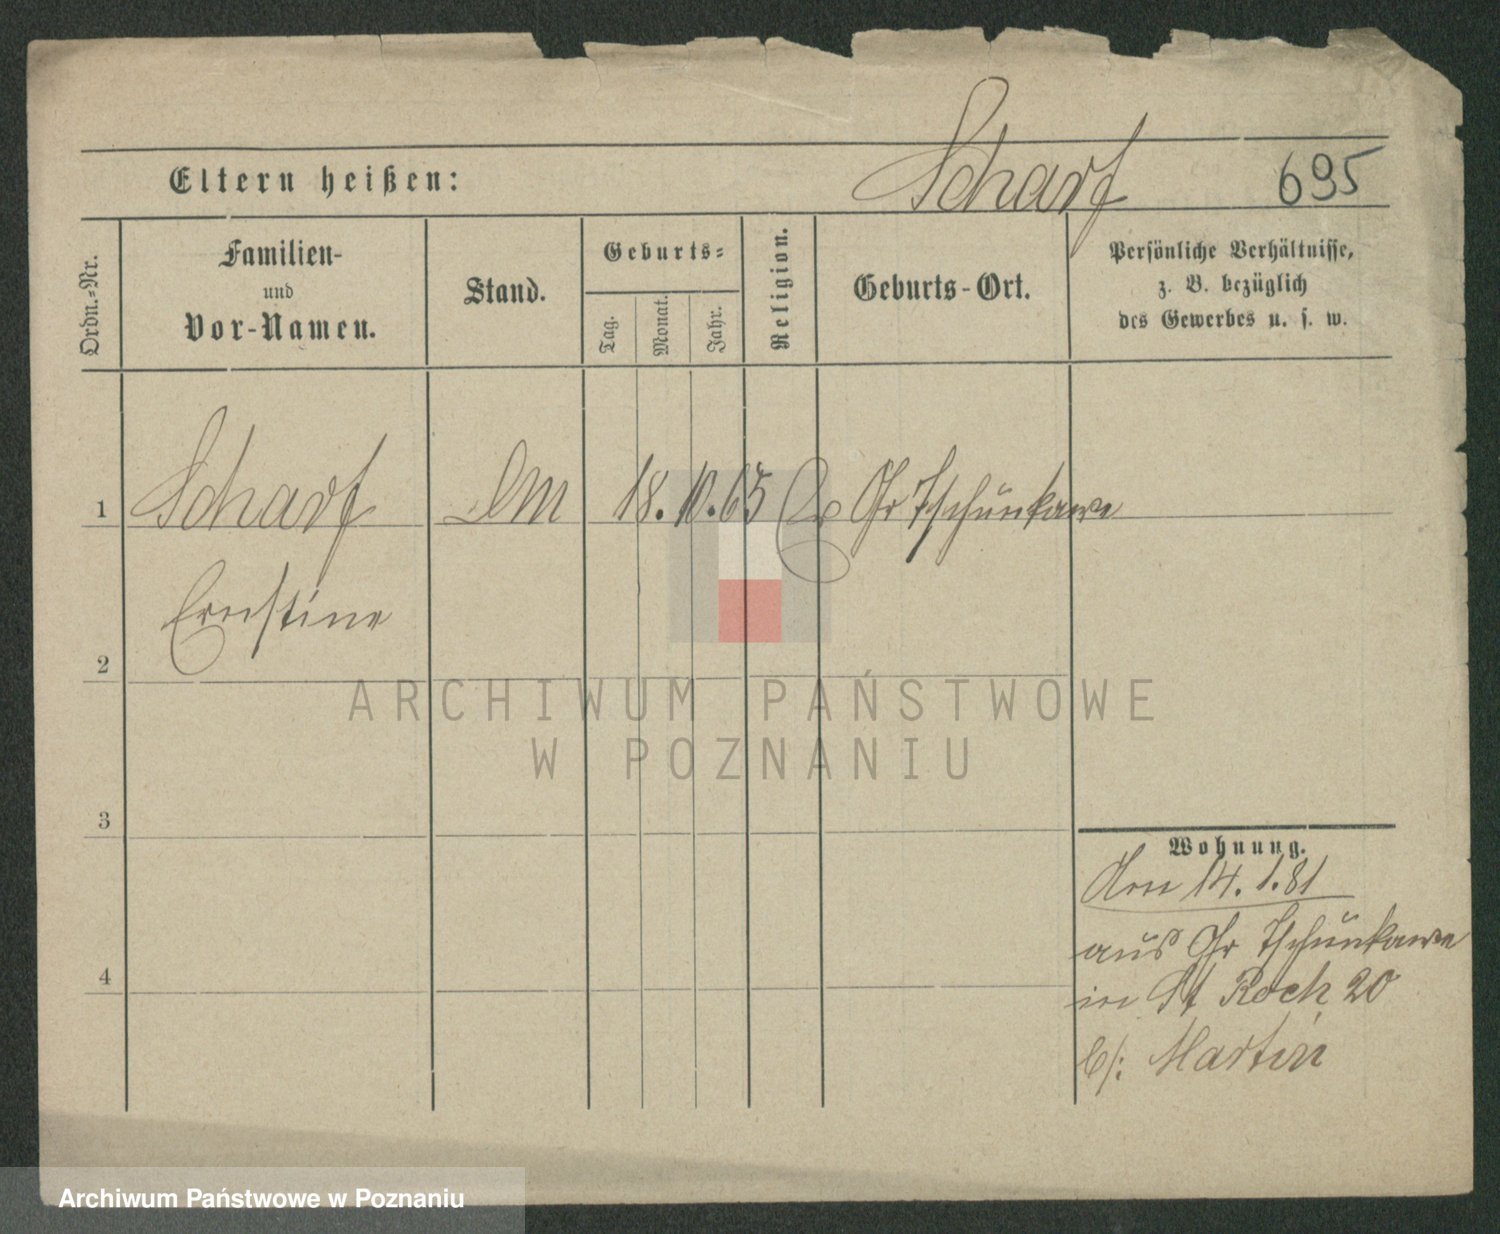 Scharf 695
Eltern heißen:
Ordn.-Nr.
Familien-
und
Vor-Namen.
Stand.
Geburts-
Tag.
Monat.
Jahr.
Religion.
Geburts-Ort.
Persönliche Verhältnisse,
z. B. bezüglich
des Gewerbes u. s. w.
1 Scharf DM 18. 10. 65 Gr Tschunkawe
Ernstine
2
3
4
Wohnung.
Am 14. 1. 81
aus Gr Tschunkawe
in St Roch 20
b/: Martin
ARCHIWUM PAŃSTWOWE
W POZNANIU
Archiwum Państwowe w Poznaniu